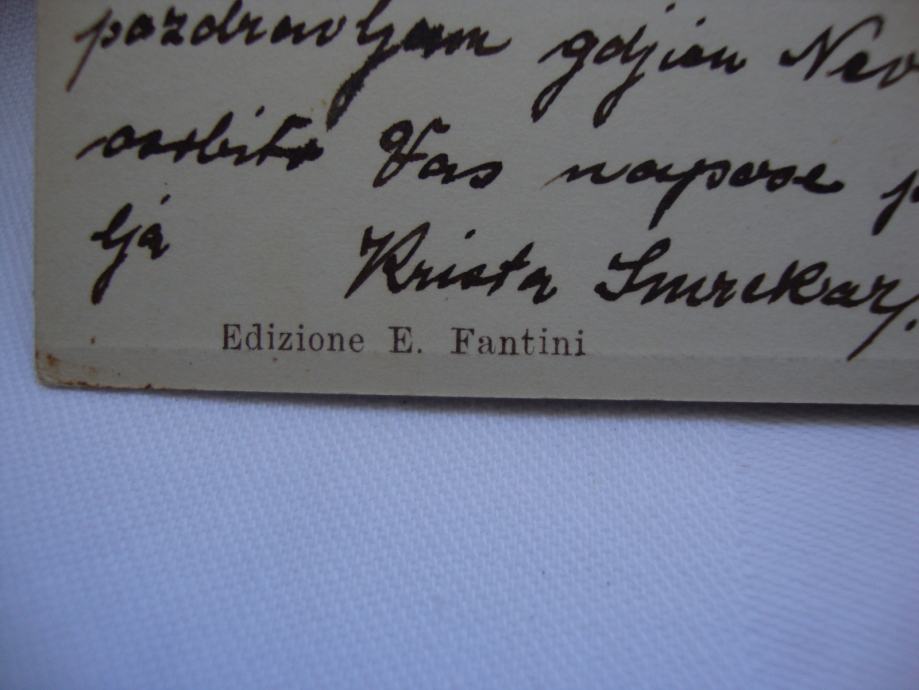 pozdravljam gdjicu Nev
osobito Vas napose p
lja Krista Smrekar.
Edizione E. Fantini